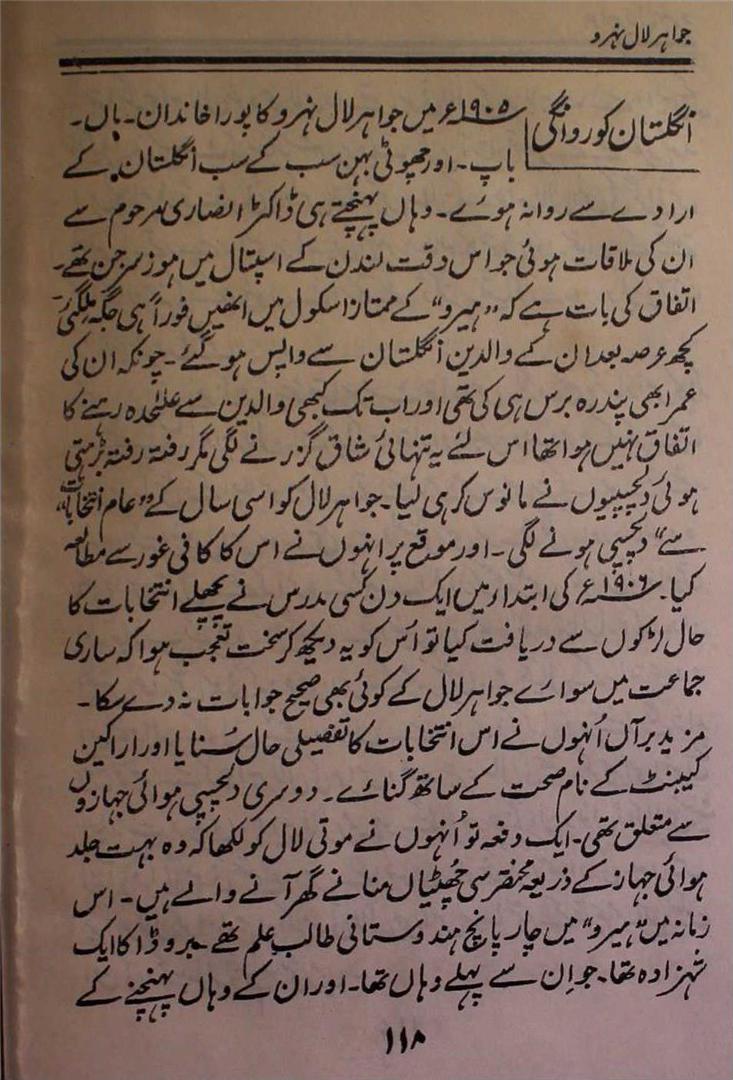 جواہر لال نہرو
انگلستان کو روانگی
۱۹۰۵ء میں جواہر لال نہرو کا پورا خاندان۔ ماں۔
باپ۔ اور چھوٹی بہن سب کے سب انگلستان کے
ارادے سے روانہ ہوئے۔ وہاں پہنچتے ہی ڈاکٹر انصاری مرحوم سے
ان کی ملاقات ہوئی جو اس وقت لندن کے اسپتال میں ہوز سرجن تھے۔
اتفاق کی بات ہے کہ ”ہیرو“ کے ممتاز اسکول میں انھیں فوراً ہی جگہ مل گئی
کچھ عرصہ بعد ان کے والدین انگلستان سے واپس ہو گئے۔ چونکہ ان کی
عمر ابھی پندرہ برس ہی کی تھی اور اب تک کبھی والدین سے علٰحدہ رہنے کا
اتفاق نہیں ہوا تھا اس لئے یہ تنہائی شاق گزرنے لگی مگر رفتہ رفتہ بڑہتی
ہوئی دلچسپیوں نے مانوس کر ہی لیا۔ جواہر لال کو اسی سال کے ”عام انتخابات
سے“ دلچسپی ہونے لگی۔ اور موقع پر انہوں نے اس کا کافی غور سے مطالعہ
کیا۔ ۱۹۰۶ء کی ابتداء میں ایک دن کسی مدرس نے پچھلے انتخابات کا
حال لڑکوں سے دریافت کیا تو اُس کو یہ دیکھ کر سخت تعجب ہوا کہ ساری
جماعت میں سوائے جواہر لال کے کوئی بھی صحیح جوابات نہ دے سکا۔
مزید برآں اُنہوں نے اس انتخابات کا تفصیلی حال سُنایا اور اراکین
کیبنٹ کے نام صحت کے ساتھ گنائے۔ دوسری دلچسپی ہوائی جہازوں
سے متعلق تھی۔ ایک دفعہ تو اُنہوں نے موتی لال کو لکھا کہ وہ بہت جلد
ہوائی جہاز کے ذریعہ مختصر سی چھٹیاں منانے گھر آنے والے ہیں۔ اس
زمانہ میں ”ہیرو“ میں چار پانچ ہندوستانی طالب علم تھے۔ بروڈا کا ایک
شہزادہ تھا۔ جو اِن سے پہلے وہاں تھا۔ اور ان کے وہاں پہنچنے کے
۱۱۸